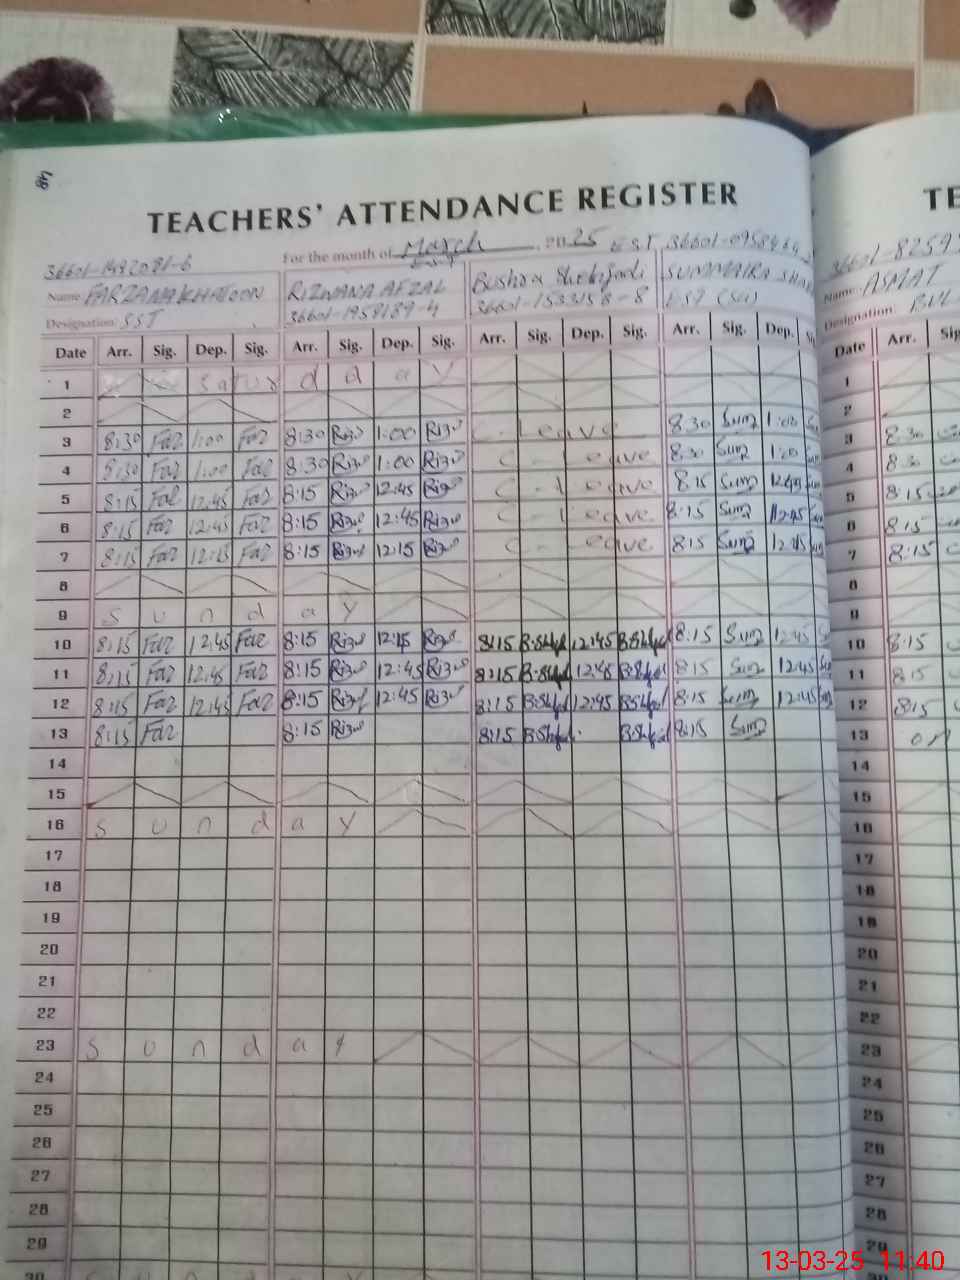 TEACHERS' ATTENDANCE REGISTER
For the month of March, 2025 EST, 36601-0958484
36601-1492081-6 EST
Name: FARZANA KHATOON RIZWANA AFZAL Bushra Shehzadi SUMMAIRA
Designation: SST 36601-1958189-4 36601-1533158-8 EST (Sci)
Name: ASMAT
Designation:
Date Arr. Sig. Dep. Sig. Arr. Sig. Dep. Sig. Arr. Sig. Dep. Sig. Arr. Sig. Dep. Date Arr.
1 d d a y 1
2 2
3 8:30 Faz 1:00 Faz 8:30 Rizw 1:00 Rizw C-Leave 8:30 Sum 1:00 3 8:30
4 8:30 Faz 1:00 Faz 8:30 Rizw 1:00 Rizw C-Leave 8:30 Sum 1:00 4 8:30
5 8:15 Faz 12:45 Faz 8:15 Rizw 12:45 Rizw C-Leave 8:15 Sum 12:45 5 8:15
6 8:15 Faz 12:45 Faz 8:15 Rizw 12:45 Rizw C-Leave 8:15 Sum 12:45 6 8:15
7 8:15 Faz 12:15 Faz 8:15 Rizw 12:15 Rizw C-Leave 8:15 Sum 12:15 7 8:15
8 8
9 S u n d a y 9
10 8:15 Faz 12:45 Faz 8:15 Rizw 8:15 B.Shhzd 12:45 B.Shhzd 8:15 Sum 12:45 10 8:15
11 8:15 Faz 12:45 Faz 8:15 Rizw 12:45 Rizw 8:15 B.Shhzd 12:45 B.Shhzd 8:15 Sum 12:45 11 8:15
12 8:15 Faz 12:45 Faz 8:15 Rizw 12:45 Rizw 8:15 B.Shhzd 12:45 B.Shhzd 8:15 Sum 12:45 12 8:15
13 8:15 Faz 8:15 Rizw 8:15 B.Shhzd B.Shhzd 8:15 Sum 13
14 14
15 15
16 S u n d a y 16
17 17
18 18
19 19
20 20
21 21
22 22
23 S u n d a y 23
24 24
25 25
26 26
27 27
28 28
29 29
30
13-03-25 11:40